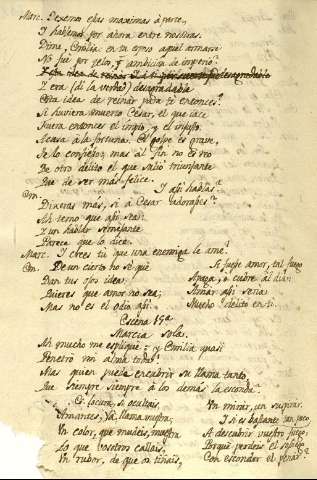 Marc. Dexemos esas maximas á parte,
Y hablemos por ahora entre nosotras.
Dime, Emilia en tu esposo aquel armarse
No fué por zelo, y ambicion de imperio?
Y era (di la verdad) desagradable
Esta idea de reinar para tí entonces?
Si huviera muerto Cesar, el que iace
Fuera entonces el impio, y el injusto.
Acasa á la fortuna. El golpe es grave,
Te lo confieso; mas al fin no es reo
De otro delito el que salió triunfante
Que de ser más felice.
Em. Y asi hablas?
Dixeras más, si á Cesar adorases?
Ah temo que asi sea:
Y un hablar semejante
Parece que lo dice.
Marc. Y crees tú que una enemiga le ame?
Em. De un cierto no sé qué
Dan tus ojos idea;
Quieres que amor no sea;
Mas no es el odio asi.
Si fuese amor, tal fuego
Apaga, ó cubre al dia:
Amar asi seria
Mucho delito en tí.
Escena 15ª
Marcia sola.
Ah mucho me expliqué: y Emilia quasi
Penetró mi alma toda!
Mas quien puede encubrir su llama tanto,
Que siempre siempre á los demás la esconda?
Es locura, si ocultais,
Amantes, la llama vuestra;
Un color, que mudeis, muestra
Lo que vosotros callais,
Un rubor, de que os tiñais,
Un mirar, un suspirar.
Y si es bastante tan poco
A descubrir vuestro fuego,
Porqué perdeis el sosiego
Con esconder el penar?